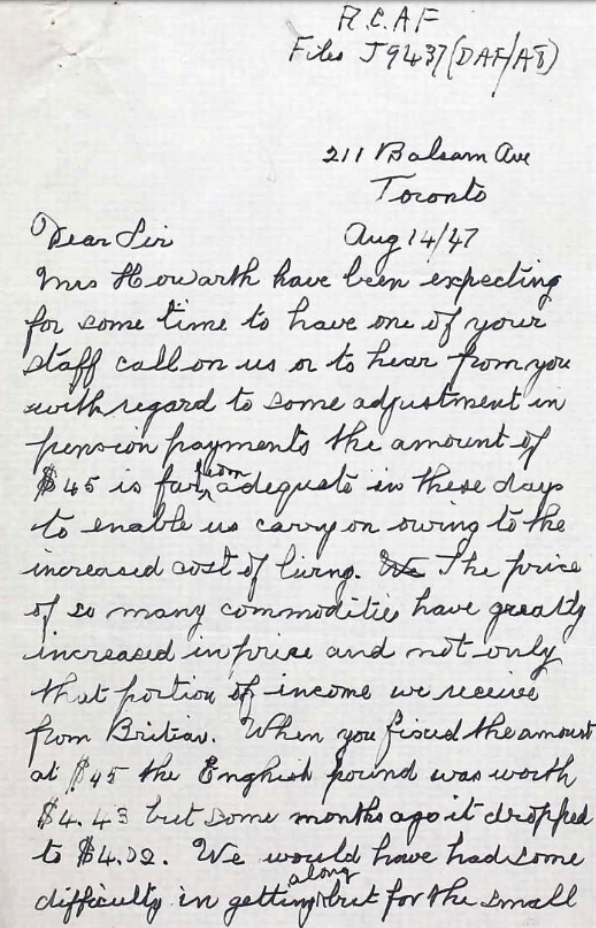 R.C.A.F
Files J9437(DAF/A8)
211 Balsam Ave
Toronto
Dear Sir Aug 14/47
Mrs Howarth have been expecting
for some time to have one of your
staff call on us or to hear from you
with regard to some adjustment in
pension payments the amount of
$45 is far from adequate in these days
to enable us carry on owing to the
increased cost of living. We The price
of so many commodities have greatly
increased in price and not only
that portion of income we receive
from Britian. When you fixed the amount
at $45 the English pound was worth
$4.43 but some months ago it dropped
to $4.02. We would have had some
difficulty in getting along but for the small